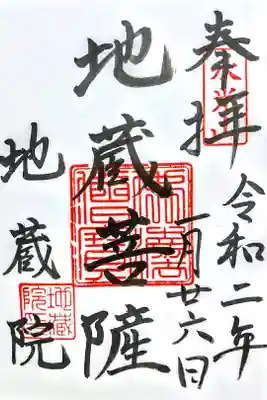 奉拝
令和二年
一月廿六日
地蔵菩薩
地蔵院